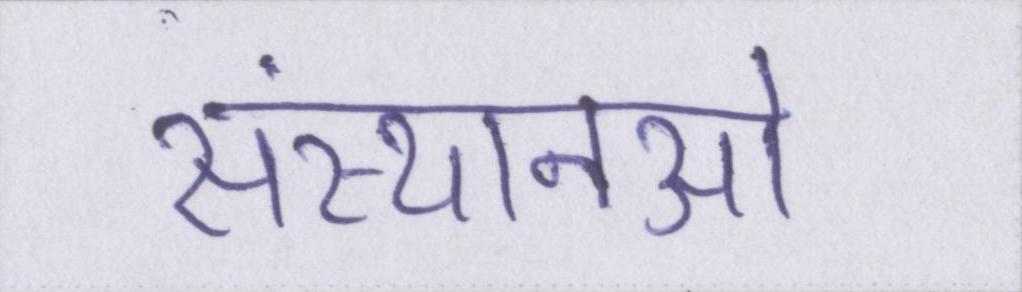 संस्थानओ